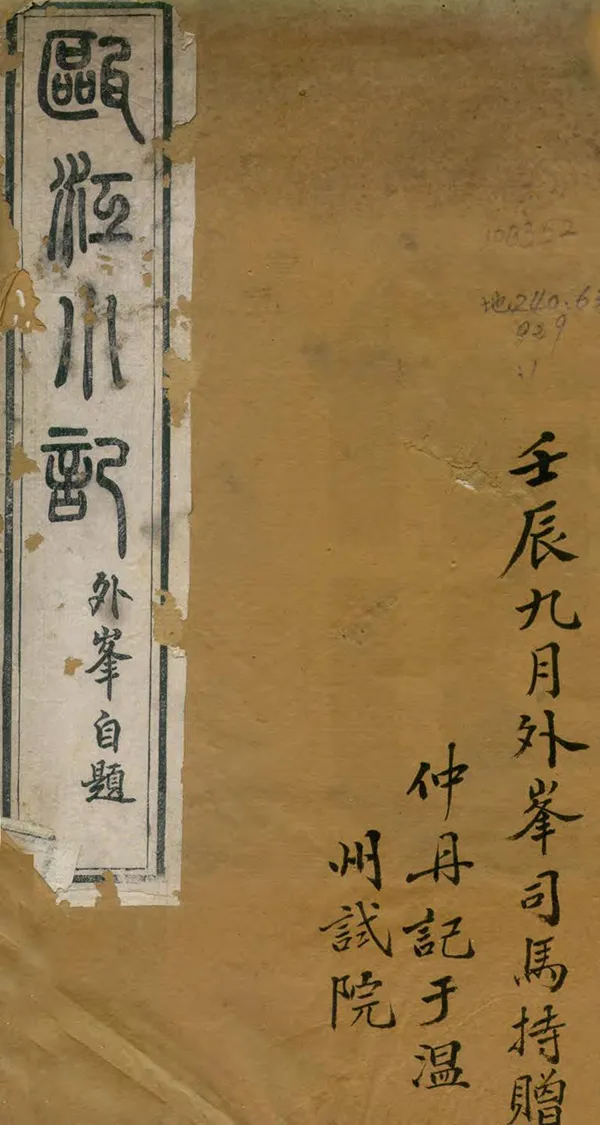 甌江小記
外峯自題
108352
地240.6
929
壬辰九月外峯司馬持贈
仲丹記于温
州試院